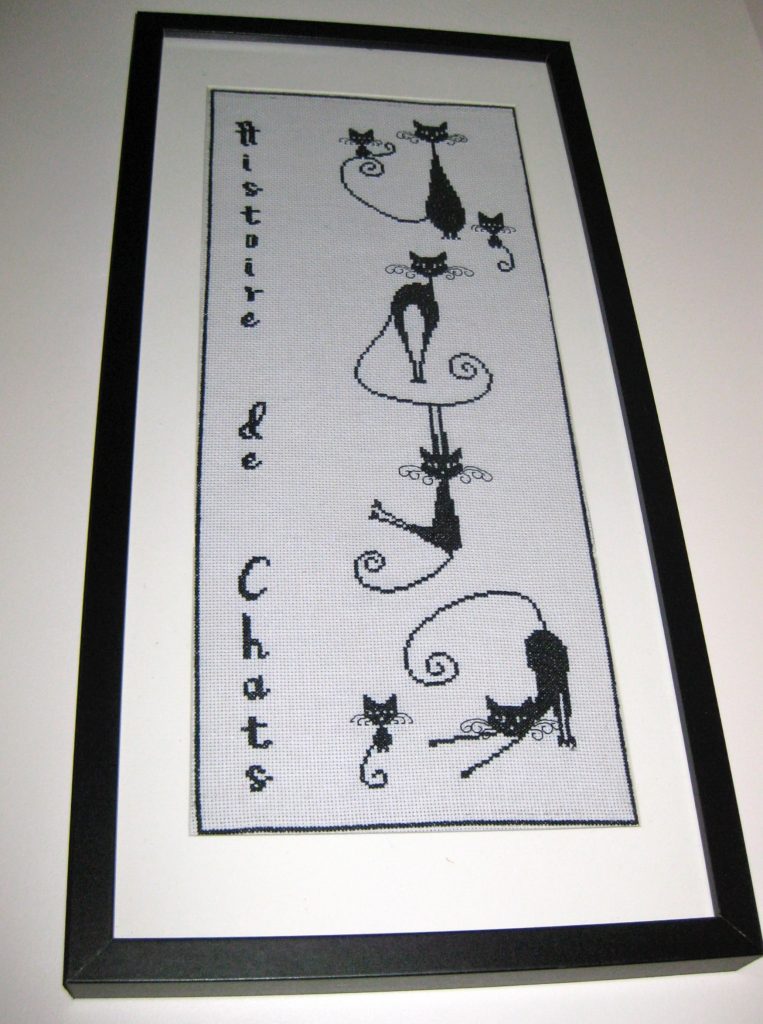 Histoire
de
Chats